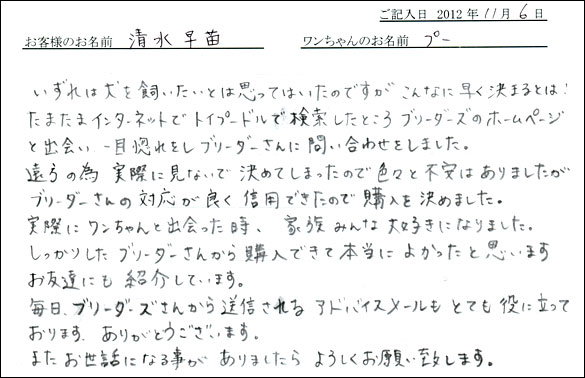 ご記入日 2012 年 11 月 6 日
お客様のお名前 清水早苗 ワンちゃんのお名前 プー
いずれは犬を飼いたいとは思ってはいたのですが こんなに早く決まるとは!
たまたまインターネットでトイプードルで検索したところ ブリーダーズのホームページ
と出会い 一目惚れをしブリーダーさんに問い合わせをしました。
遠方の為 実際に見ないで決めてしまったので色々と不安はありましたが
ブリーダーさんの対応が良く信用できたので購入を決めました。
実際にワンちゃんと出会った時、家族みんな大好きになりました。
しっかりしたブリーダーさんから購入できて本当によかったと思います
お友達にも紹介しています。
毎日、ブリーダーズさんから送信されるアドバイスメールもとても役に立って
おります。ありがとうございます。
またお世話になる事がありましたらよろしくお願い致します。